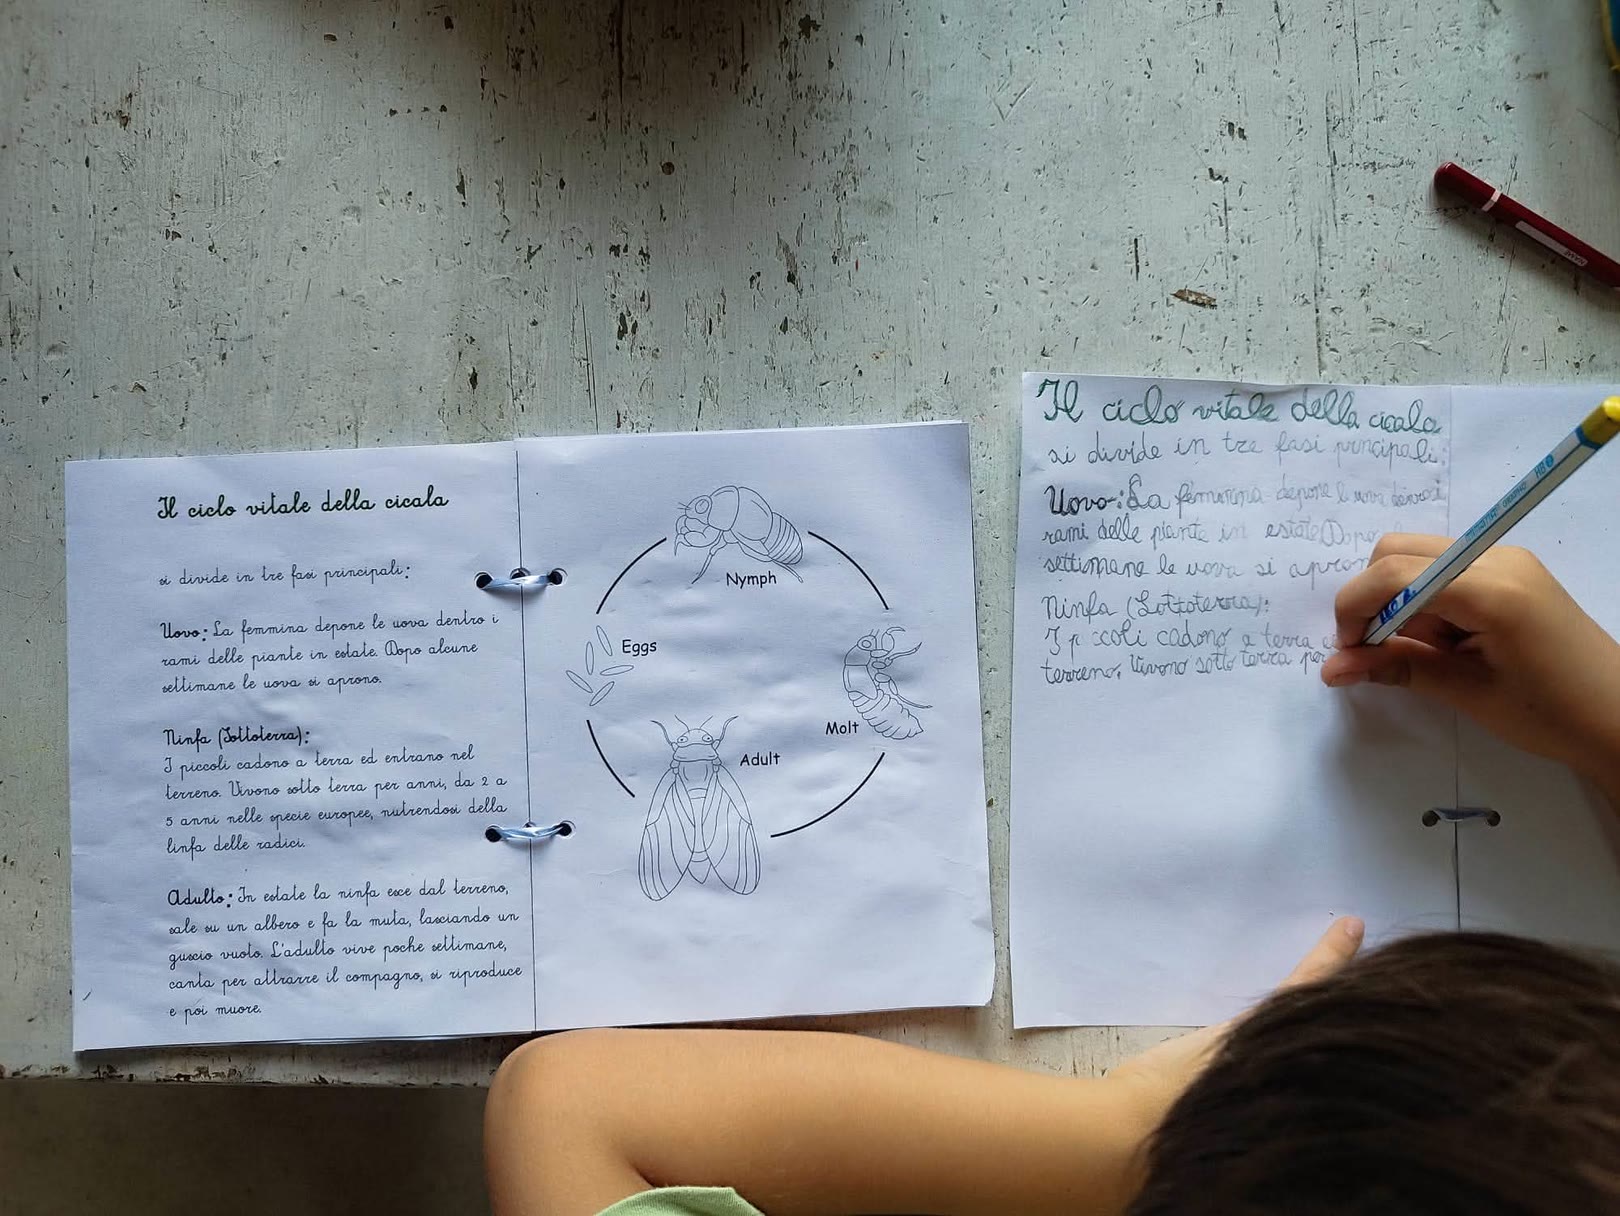 Il ciclo vitale della cicala
si divide in tre fasi principali:
Uovo: La femmina depone le uova dentro i
rami delle piante in estate. Dopo alcune
settimane le uova si aprono.
Ninfa (Sottoterra):
I piccoli cadono a terra ed entrano nel
terreno. Vivono sotto terra per anni, da 2 a
5 anni nelle specie europee, nutrendosi della
linfa delle radici.
Adulto: In estate la ninfa esce dal terreno,
sale su un albero e fa la muta, lasciando un
guscio vuoto. L'adulto vive poche settimane,
canta per attrarre il compagno, si riproduce
e poi muore.
Nymph
Eggs
Molt
Adult
Il ciclo vitale della cicala
si divide in tre fasi principali:
Uovo: La femmina depone le uova
rami delle piante in estate Dopo
settimane le uova si apron
Ninfa (Sottoterra):
I p ccoli cadono a terra e
terreno. Vivono sotto terra per
HB